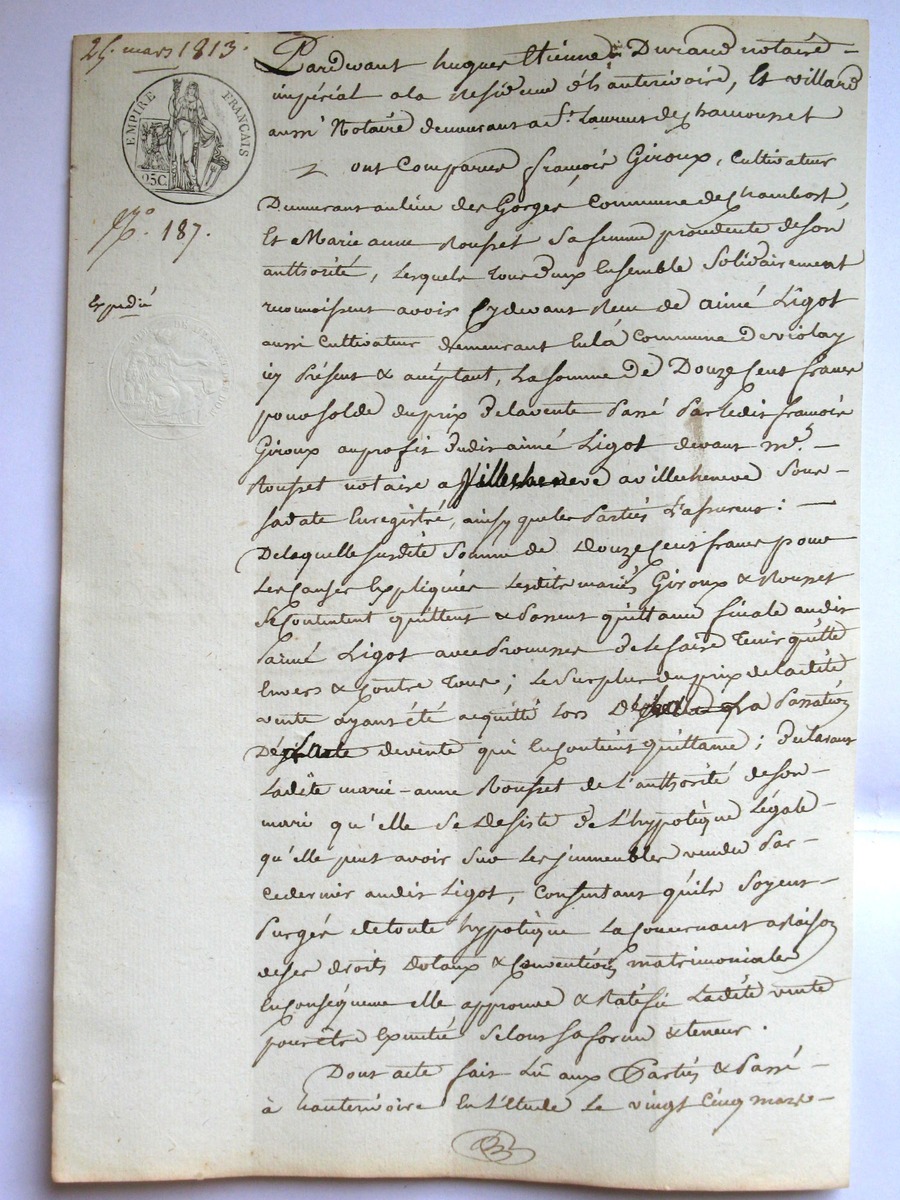 25. mars 1813.
EMPIRE FRANÇAIS
25C.
N.º 187.
Expedié
Pardevant hugues Etienne Durand notaire
impérial a la Residence d'hauterivoire, Et Villard
aussi Notaire demeurant a St. Laurent de Chamousset
ont Comparus françois Giroux, Cultivateur
Demeurant au lieu des Gorges Commune de Chambost,
Et Marie anne Rousset Sa femme procédente de son
authorité, Lesquels tous deux Ensemble Solidairement
reconnoissent avoir Cydevant Reçu de aimé Ligot
aussi Cultivateur demeurant En la Commune de violay
icy Présent & acceptant, La Somme de Douze Cent francs
pour solde du prix de la vente Passé Par Ledit françois
Giroux au profit dudit aimé Ligot devant me.
Rousset notaire a villecheneve Sous
sa date Enregistré, ainsy que les Parties l'assurent :
De laquelle susdite Somme de Douze Cent francs pour
Les Causes Expliquées Lesdits mariés Giroux & Rousset
Se Contentent quittent & Passent quittance finale audit
aimé Ligot avec Promesse de le faire Tenir quitte
Envers & Contre Tous ; Le Surplus du prix de ladite
vente ayant été acquitté Lors De la Passation
de vente qui En Contient quittance ; Déclarant
Ladite marie-anne Rousset de L'authorité de son
mari qu'elle Se Désiste de L'hypotèque Légale
qu'elle peut avoir Sur Les jmmeubles vendu Par
ce dernier audit Ligot, Consentant qu'ils Soyent
Purgés de toute hypotèque La Concernant a Raison
de ses droits Dotaux & Conventions matrimoniales
En Conséquence elle approuve & Ratéfie Ladite vente
pour être Exécuté Selon Sa forme & teneur.
Dont acte fait Lu aux Parties & Passé
à hauterivoire En L'Etude Le vingt Cinq mars